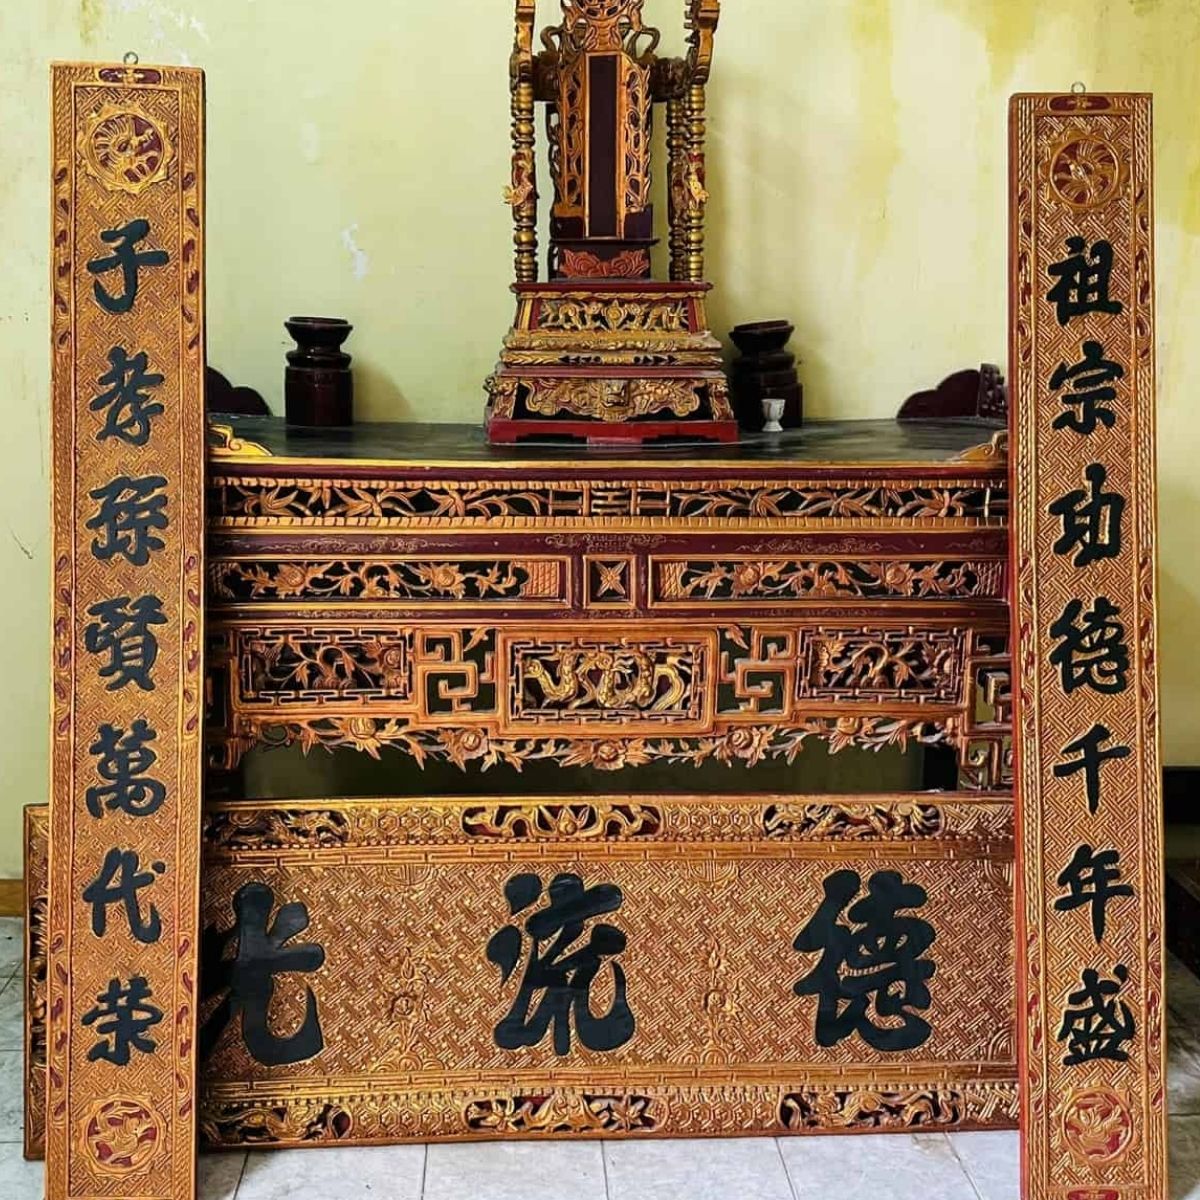 祖宗功德千年盛
子孝孫賢萬代榮
德流光